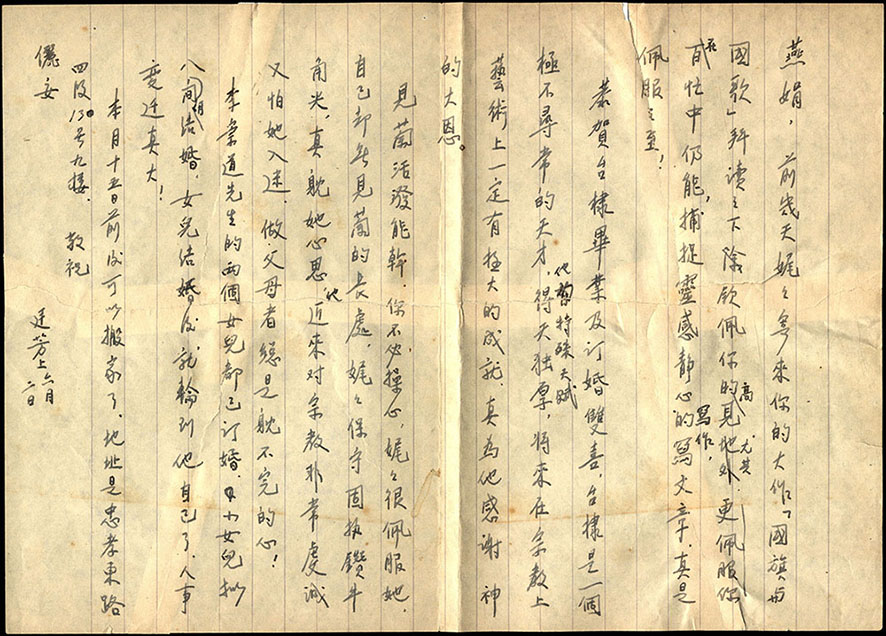 燕娟，前幾天娓娓寄來你的大作「國旗與
國歌」拜讀之下除欽佩你的高見地外，尤其更佩服你
在百忙中仍能，捕捉靈感靜心的寫作，寫文章，真是
佩服之至！
恭賀台棣畢業及訂婚雙喜，台棣是一個
極不尋常的天才，他特殊天賦得天独厚，將來在宗教上
藝術上一定有極大的成就，真為他感謝神
的大恩。
見蘭活潑能幹，你不必操心，娓娓很佩服她，
自己卻無見蘭的長處，娓娓保守固執鑽牛
角尖，真躭她心思，她近來对宗教非常虔誠
又怕她入迷，做父母者總是躭不完的心！
李崇道先生的兩個女兒都已訂婚，小女兒擬
八月間結婚，女兒結婚後，就輪到他自己了，人事
變迁真大！
本月十五日前後可以搬家了，地址是忠孝東路
四段130号九樓， 敬祝
儷安
廷芳上 六月二日